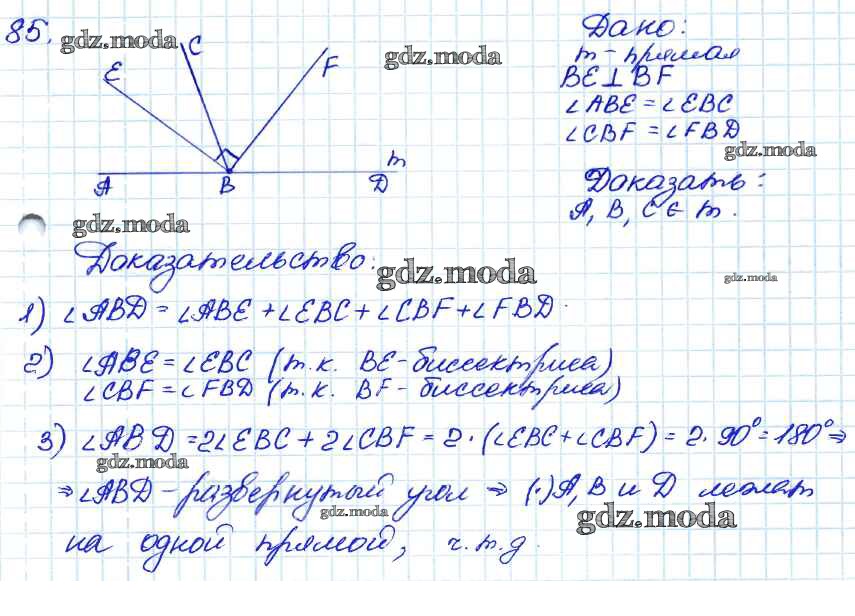 85.
gdz.moda
C
E
F
gdz.moda
A B D m
Дано:
m - прямая
BE ⊥ BF
∠ABE = ∠EBC
∠CBF = ∠FBD
gdz.moda
Доказать:
A, B, C ∈ m.
gdz.moda
Доказательство:
gdz.moda
gdz.moda
1) ∠ABD = ∠ABE + ∠EBC + ∠CBF + ∠FBD.
2) ∠ABE = ∠EBC (т.к. BE - биссектриса)
∠CBF = ∠FBD (т.к. BF - биссектриса)
3) ∠ABD = 2∠EBC + 2∠CBF = 2·(∠EBC + ∠CBF) = 2·90° = 180° ⇒
gdz.moda
⇒ ∠ABD - развернутый угол ⇒ (·) A, B и D лежат
gdz.moda
gdz.moda
на одной прямой, ч.т.д.